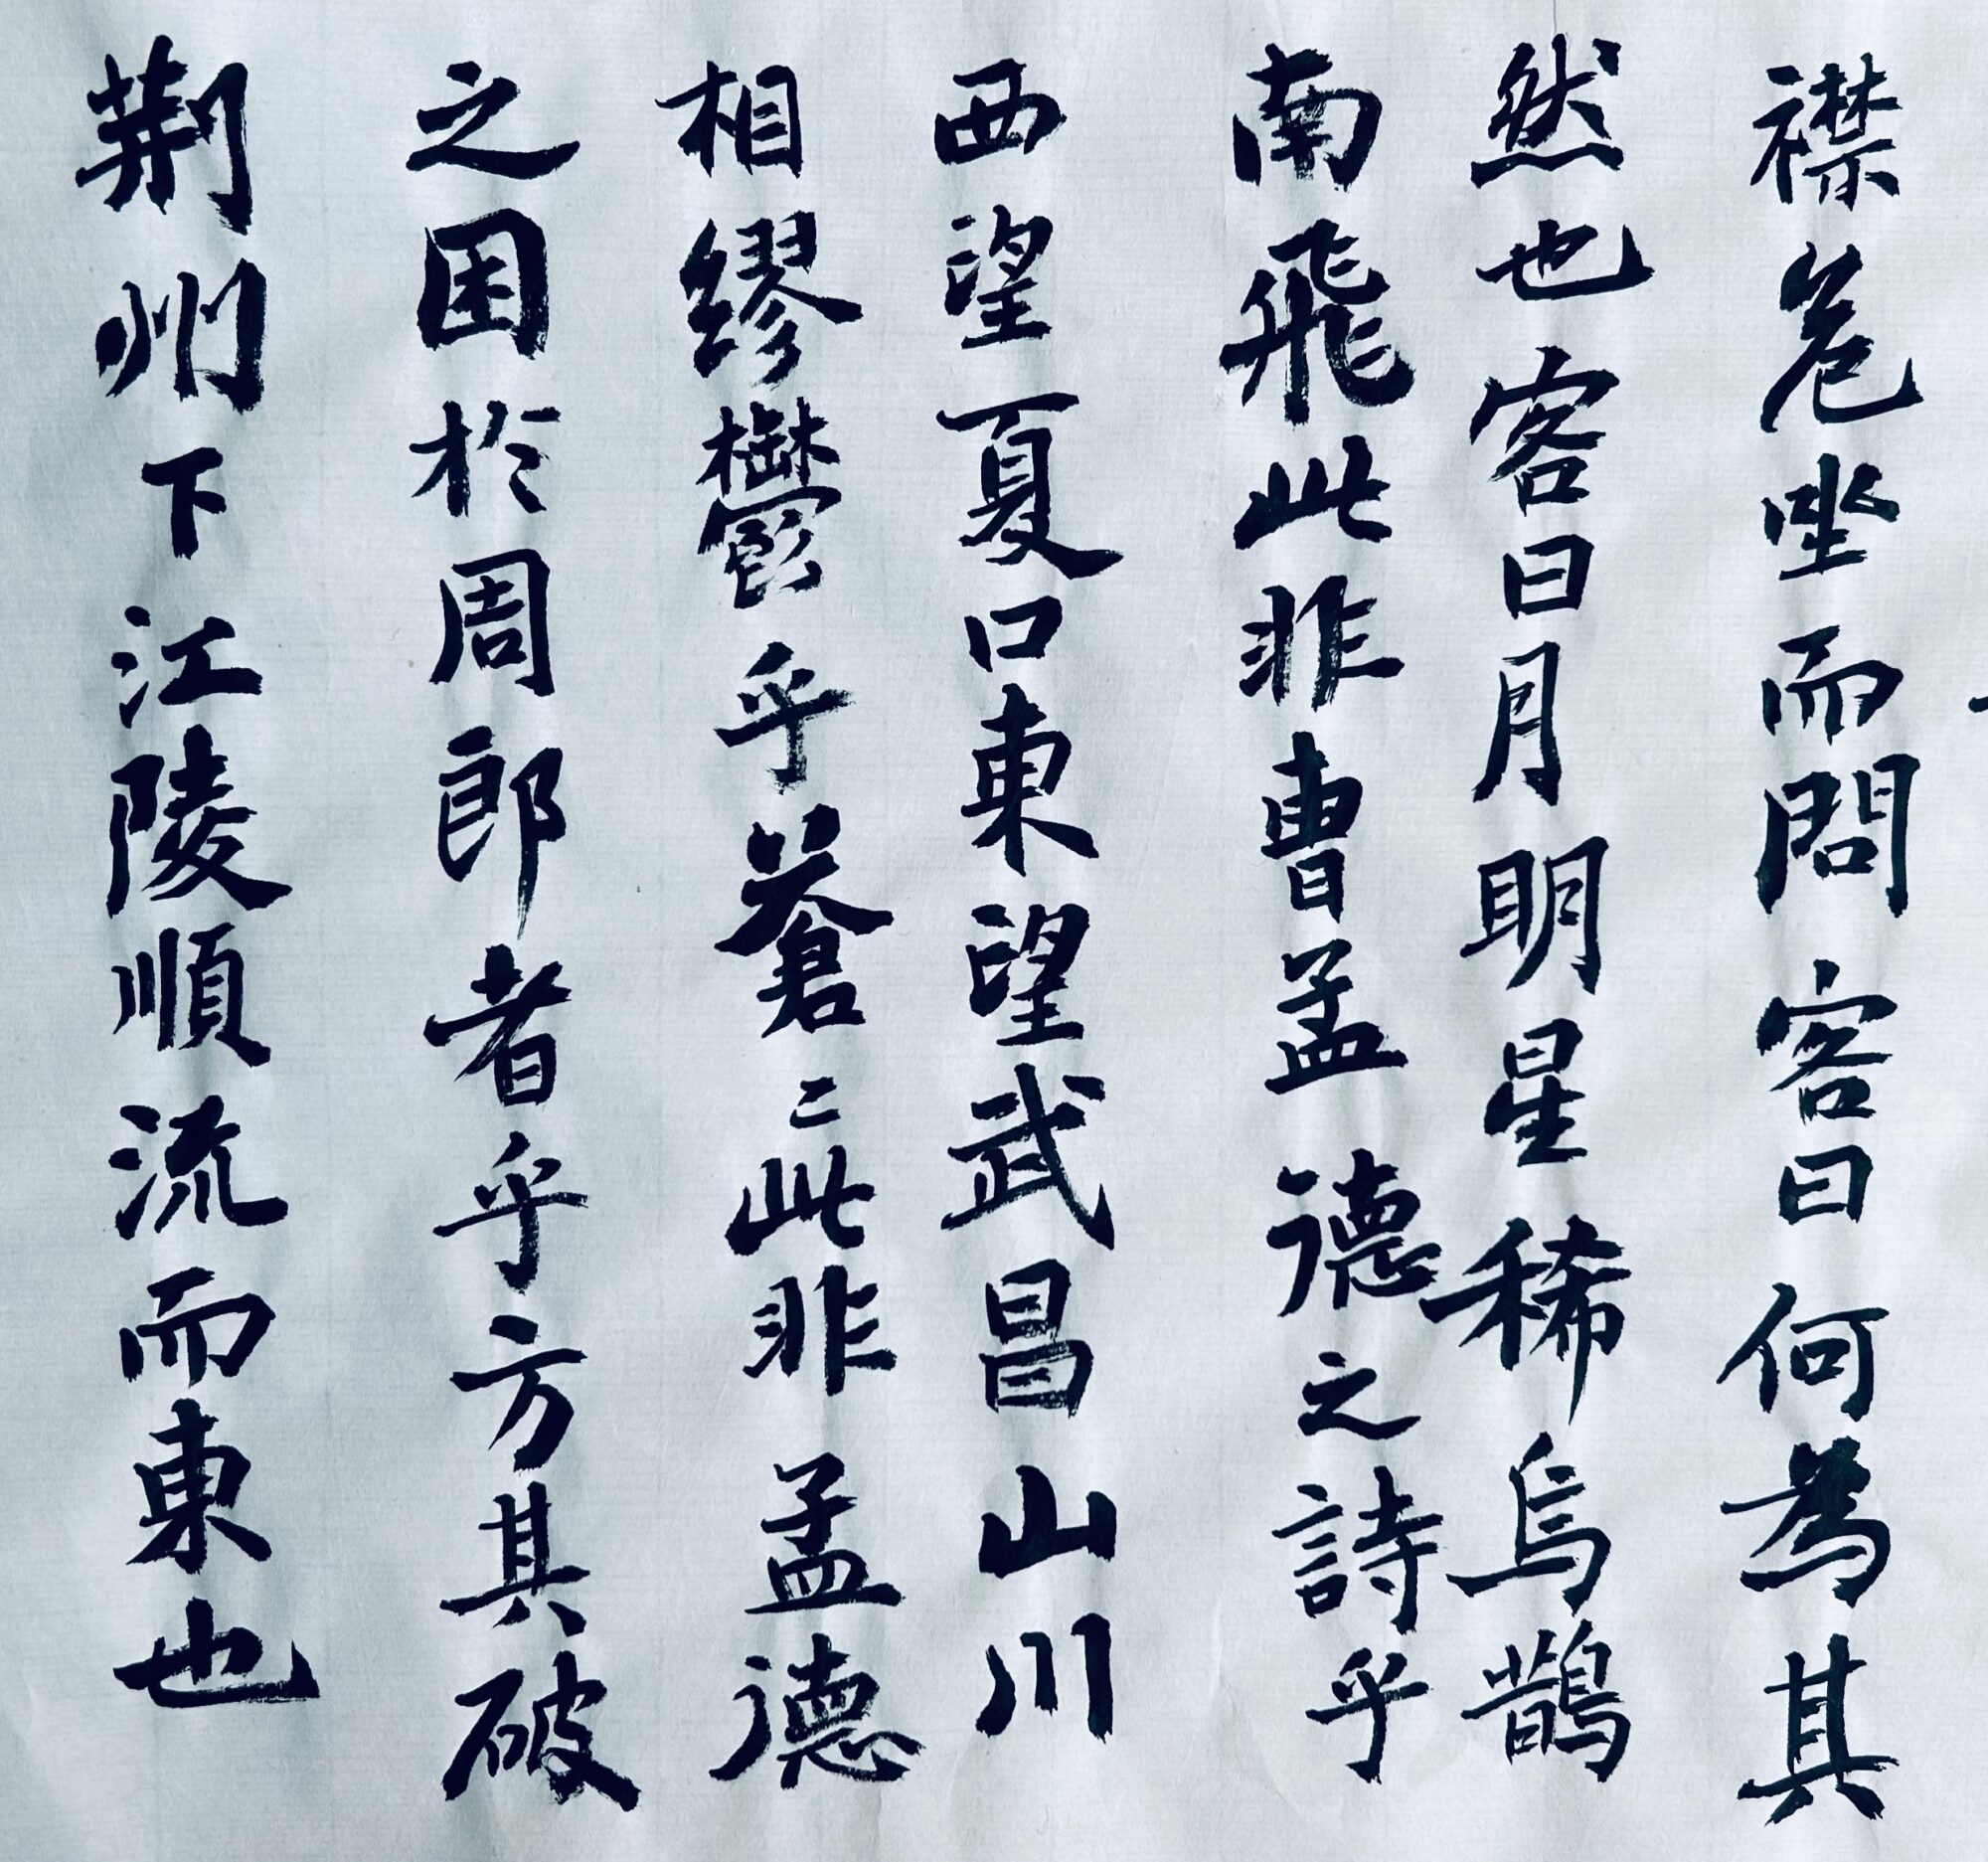 襟危坐而問客曰何為其
然也客曰月明星稀烏鵲
南飛此非曹孟德之詩乎
西望夏口東望武昌山川
相繆鬱乎蒼〻此非孟德
之困於周郎者乎方其破
荆州下江陵順流而東也